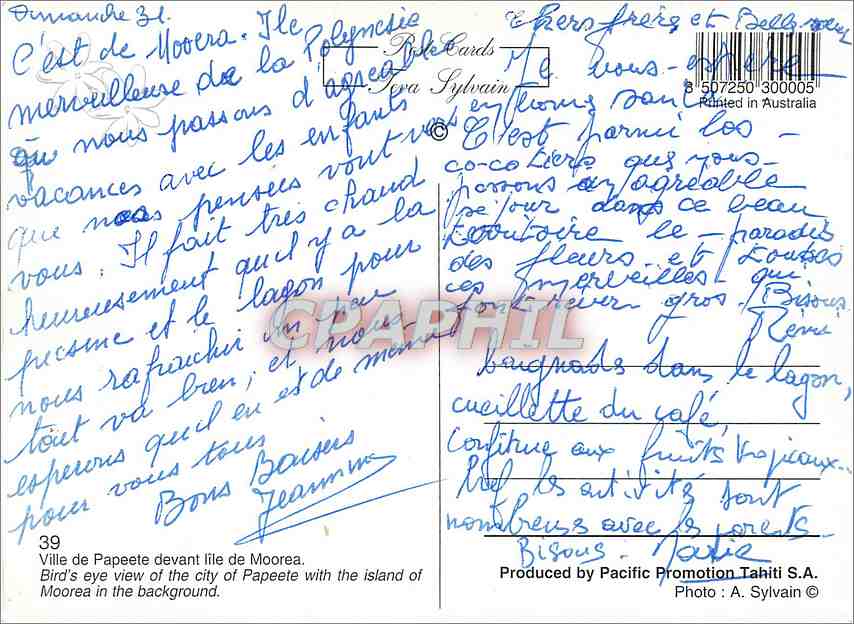 Dimanche 31.
C'est de Moorea. Ile
merveilleuse de la Polynésie
que nous passons d'agréable
vacances avec les enfants
que nos pensées vont vers
vous. Il fait très chaud
heureusement qu'il y a la
piscine et le lagon pour
nous rafraichir un peu
tout va bien, et nous
esperons qu'il en est de même
pour vous tous
Bons Baisers
Jeannine
39
Ville de Papeete devant lîle de Moorea.
Bird's eye view of the city of Papeete with the island of
Moorea in the background.
Post Cards
Teva Sylvain
©
CPAPHIL
Chers frère et Belle soeur
Je vous espère
en bonne santé
C'est parmi les
co-cotiers que nous
passons un agréable
séjour dans ce beau
territoire le paradis
des fleurs et toutes
ces merveilles qui
font rêver gros. Bisous
Rémi
baignade dans le lagon,
cueillette du café,
confiture aux fruits tropicaux..
Bref les activités sont
nombreuses avec les parents.
Bisous.
507250 300005
Printed in Australia
Produced by Pacific Promotion Tahiti S.A.
Photo : A. Sylvain ©